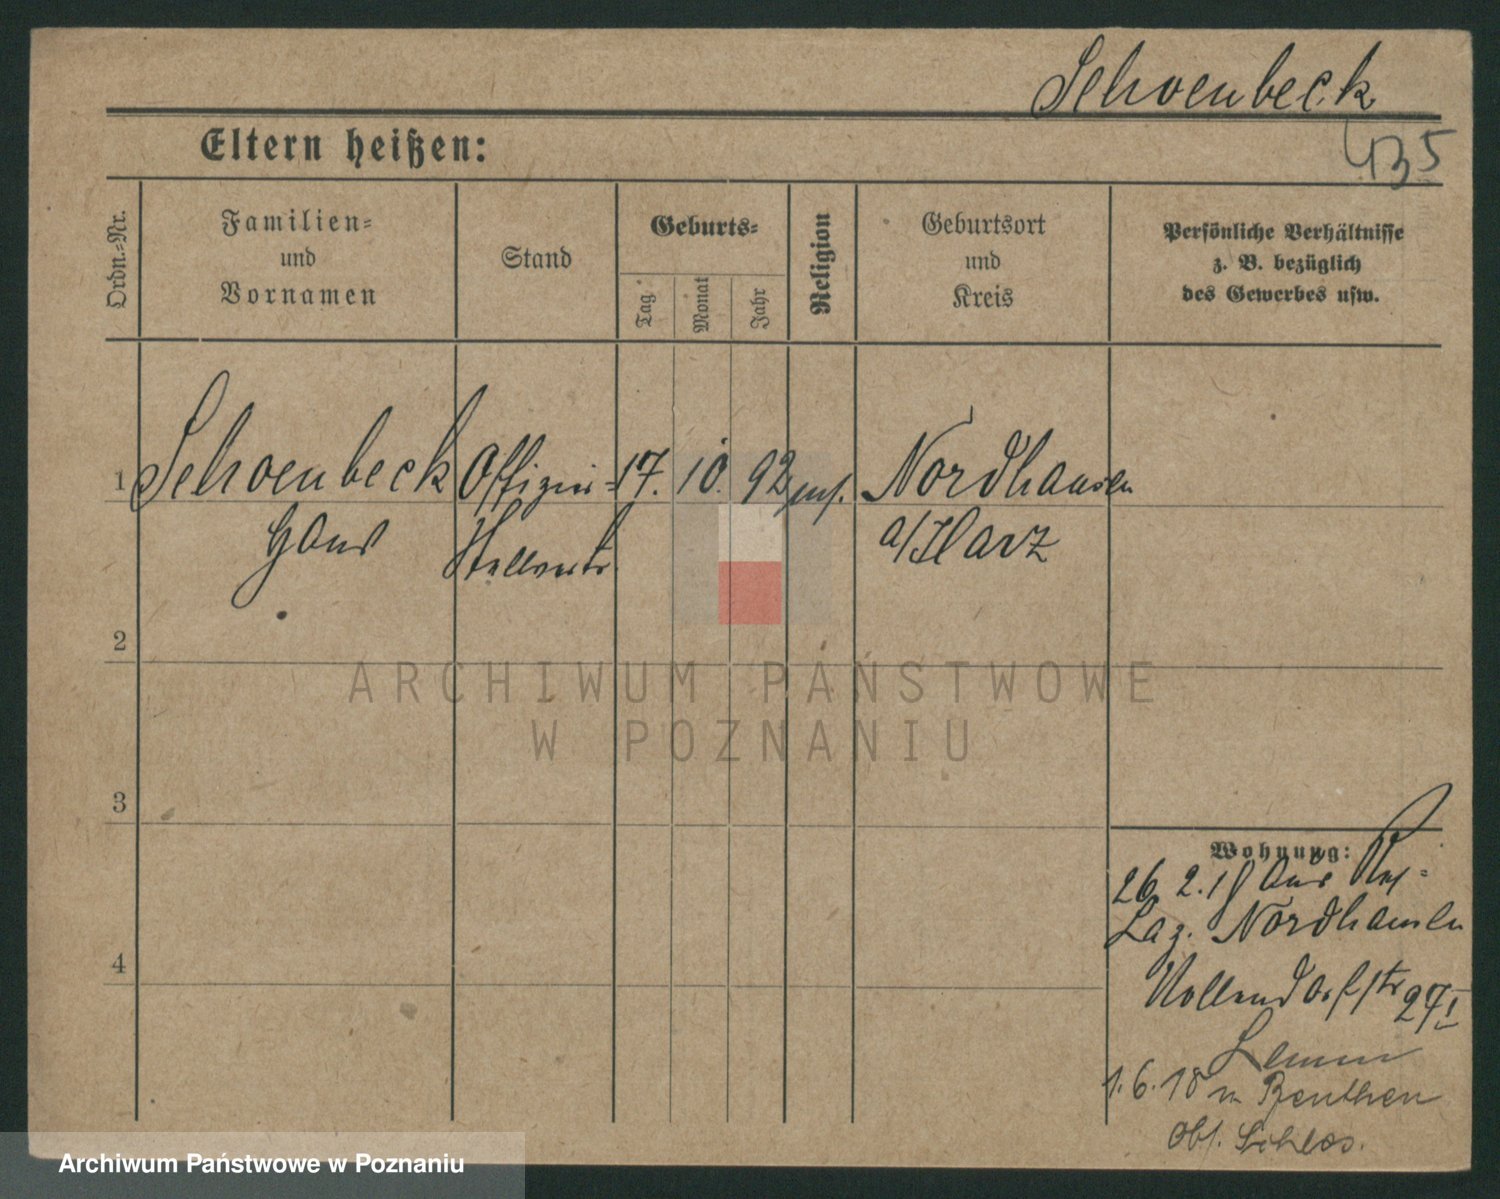 Schoenbeck
435
Eltern heißen:
Ordn.-Nr.
Familien-
und
Vornamen
Stand
Geburts-
Tag
Monat
Jahr
Religion
Geburtsort
und
Kreis
Persönliche Verhältnisse
z. B. bezüglich
des Gewerbes usw.
1 Schoenbeck Offizier- 17. 10. 92 Nordhausen
Hans Stellvertr. a/Harz
2
3
4
Wohnung:
26. 2. 18 aus Res-
Laz. Nordhausen
Nollendorfstr 27 I
1.6.18 n. Beuthen
Obs. Schles.
ARCHIWUM PAŃSTWOWE
W POZNANIU
Archiwum Państwowe w Poznaniu